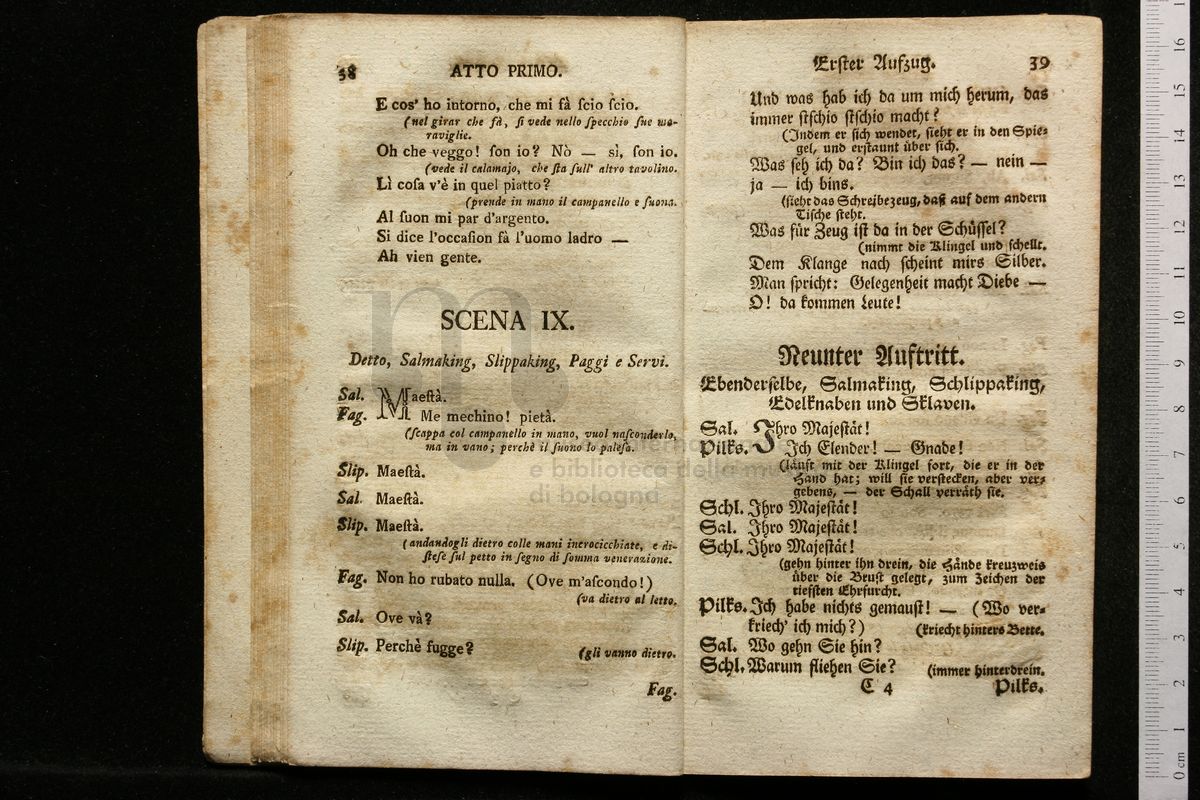 38 ATTO PRIMO.
E cos' ho intorno, che mi fà ſcio ſcio.
(nel girar che fà, ſi vede nello ſpecchio ſue ma-
raviglie.
Oh che veggo! ſon io? Nò — sì, ſon io.
(vede il calamajo, che ſta ſull' altro tavolino.
Lì coſa v'è in quel piatto?
(prende in mano il campanello e ſuona.
Al ſuon mi par d'argento.
Si dice l'occaſion fà l'uomo ladro —
Ah vien gente.
SCENA IX.
Detto, Salmaking, Slippaking, Paggi e Servi.
Sal. Maeſtà.
Fag. Me mechino! pietà.
(ſcappa col campanello in mano, vuol naſconderlo,
ma in vano; perchè il ſuono lo paleſa.
Slip. Maeſtà.
Sal. Maeſtà.
Slip. Maeſtà.
(andandogli dietro colle mani incrocicchiate, e di-
ſteſe ſul petto in ſegno di ſomma venerazione.
Fag. Non ho rubato nulla. (Ove m'aſcondo!)
(va dietro al letto.
Sal. Ove và?
Slip. Perchè fugge?
(gli vanno dietro.
Fag.
Erſter Aufzug. 39
Und was hab ich da um mich herum, das
immer ſtſchio ſtſchio macht?
(Indem er ſich wendet, ſieht er in den Spie-
gel, und erſtaunt über ſich.
Was ſeh ich da? Bin ich das? — nein —
ja — ich bins.
(ſieht das Schreibezeug, daß auf dem andern
Tiſche ſteht.
Was für Zeug iſt da in der Schüſſel?
(nimmt die Klingel und ſchellt.
Dem Klange nach ſcheint mirs Silber.
Man ſpricht: Gelegenheit macht Diebe —
O! da kommen Leute!
Neunter Auftritt.
Ebenderſelbe, Salmaking, Schlippaking,
Edelknaben und Sklaven.
Sal. Ihro Majeſtät!
Pilkſ. Ich Elender! — Gnade!
(läuft mit der Klingel fort, die er in der
Hand hat; will ſie verſtecken, aber ver-
gebens, — der Schall verräth ſie.
Schl. Ihro Majeſtät!
Sal. Ihro Majeſtät!
Schl. Ihro Majeſtät!
(gehn hinter ihn drein, die Hände kreuzweis
über die Bruſt gelegt, zum Zeichen der
tiefſten Ehrfurcht.
Pilkſ. Ich habe nichts gemauſt! — (Wo ver-
kriech' ich mich?) (kriecht hinters Bette.
Sal. Wo gehn Sie hin?
Schl. Warum fliehen Sie? (immer hinterdrein.
C 4 Pilkſ.
e biblioteca della mu
di bologna